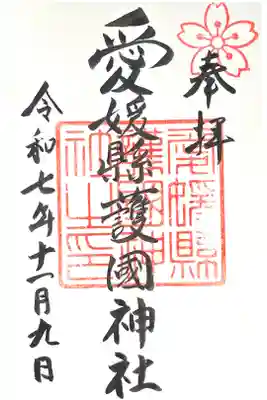 奉拝
愛媛縣護國神社
令和七年十一月九日
愛媛縣護國神社之印